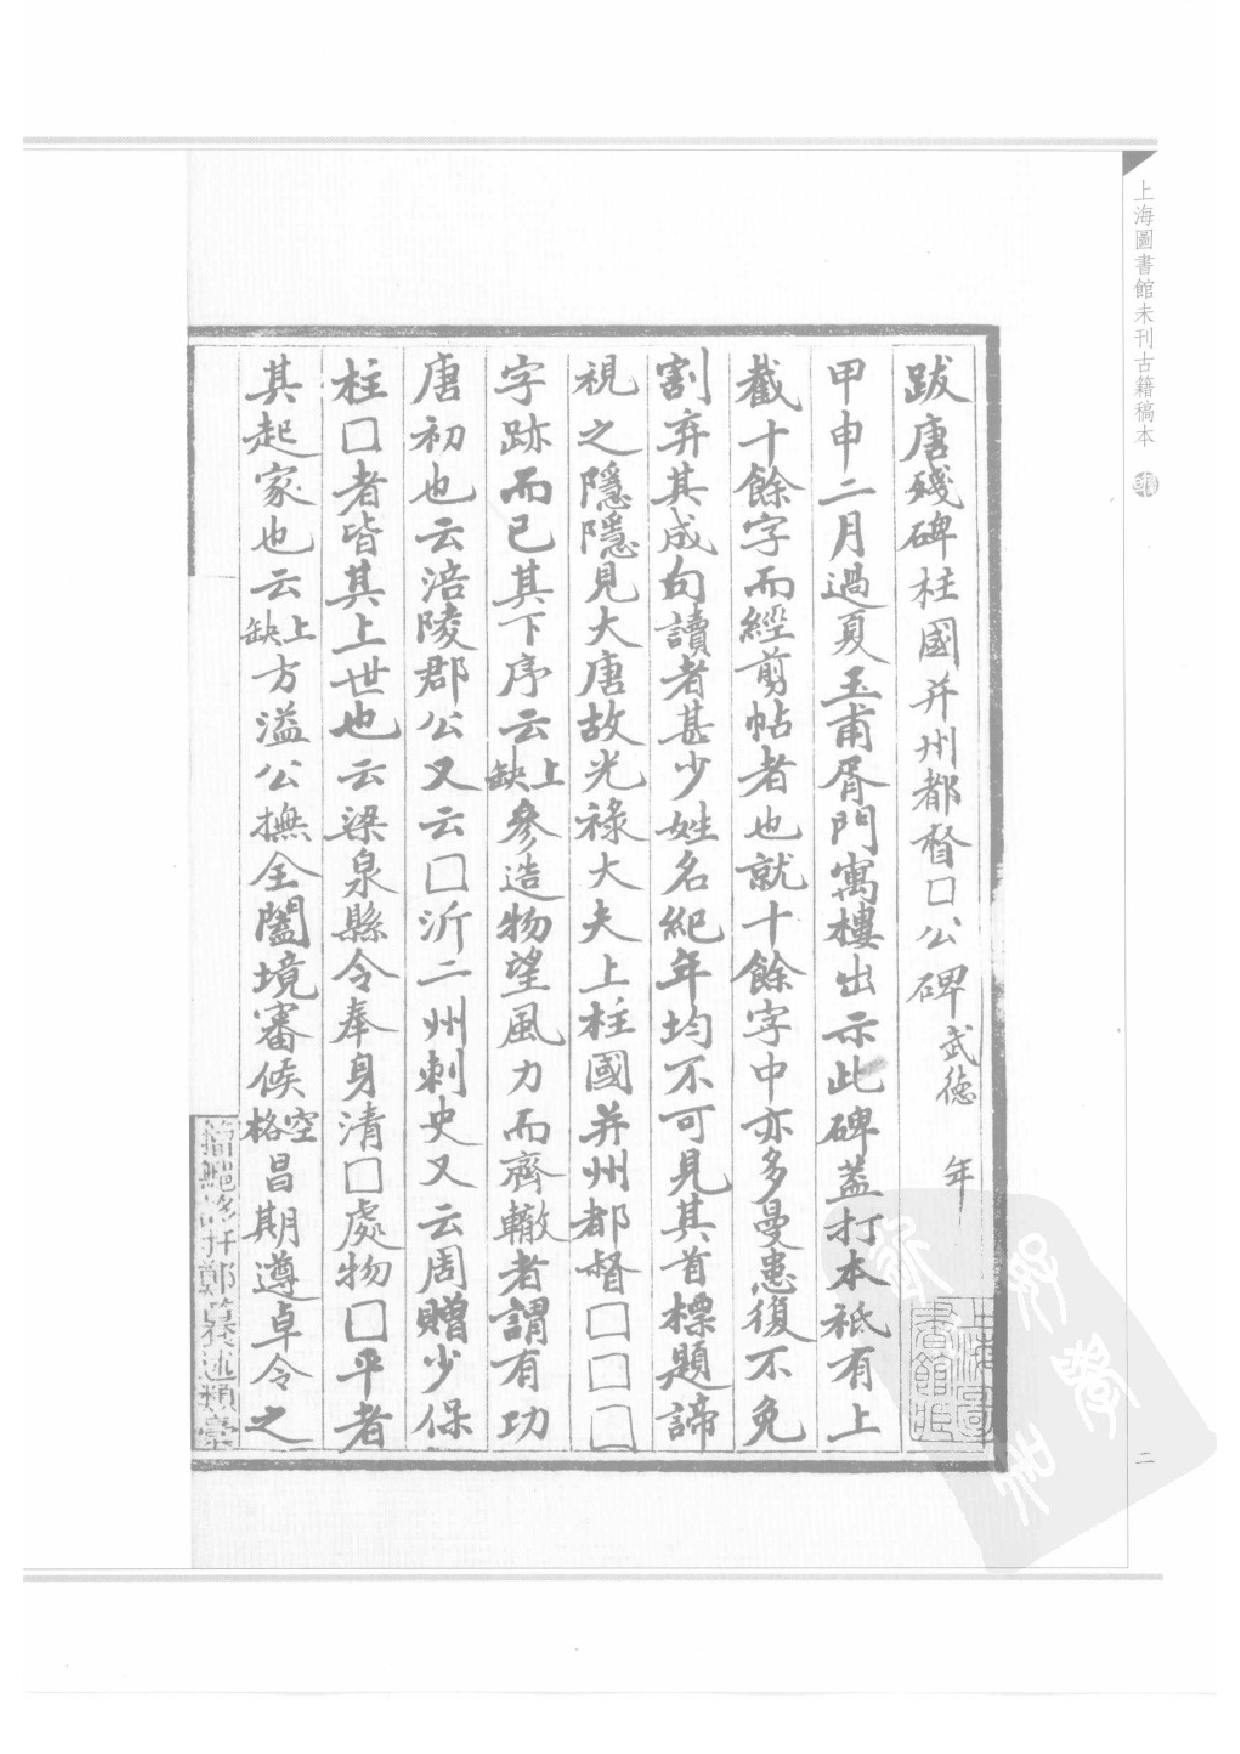 上海圖書館未刊古籍稿本
跋唐殘碑柱國并州都督□公碑武德 年
甲申二月過夏玉甫胥門寓樓出示此碑蓋打本祇有上
截十餘字而經剪帖者也就十餘字中亦多曼患復不免
割弃其成句讀者甚少姓名紀年均不可見其首標題諦
視之隱隱見大唐故光祿大夫上柱國并州都督□□□
字跡而已其下序云上缺參造物望風力而齊轍者謂有功
唐初也云涪陵郡公又云□沂二州刺史又云周贈少保
柱□者皆其上世也云梁泉縣令奉身清□處物□平者
其起家也云上缺方溢公撫全闔境審候空格昌期遵卓令之
上海圖書館藏
二